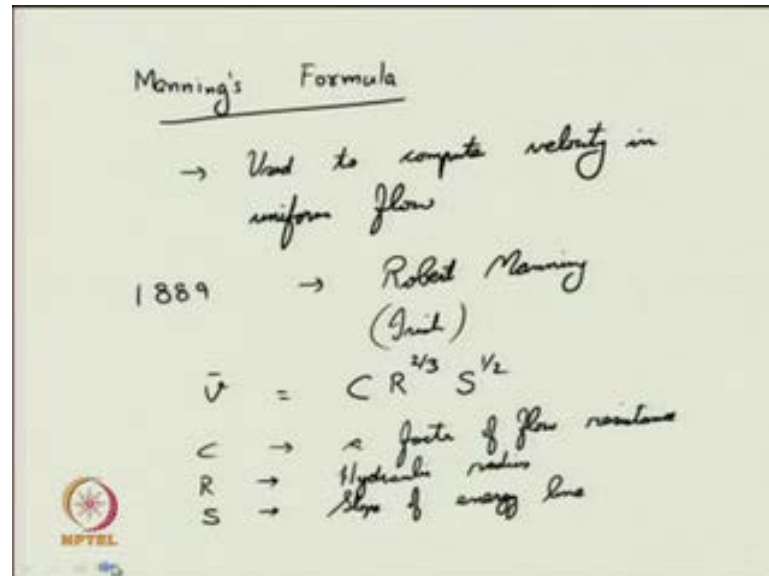 Manning's Formula
→ Used to compute velocity in
uniform flow
1889 → Robert Manning
(Irish)
v̄ = C R^{2/3} S^{1/2}
C → a factor of flow resistance
R → Hydraulic radius
S → Slope of energy line
NPTEL